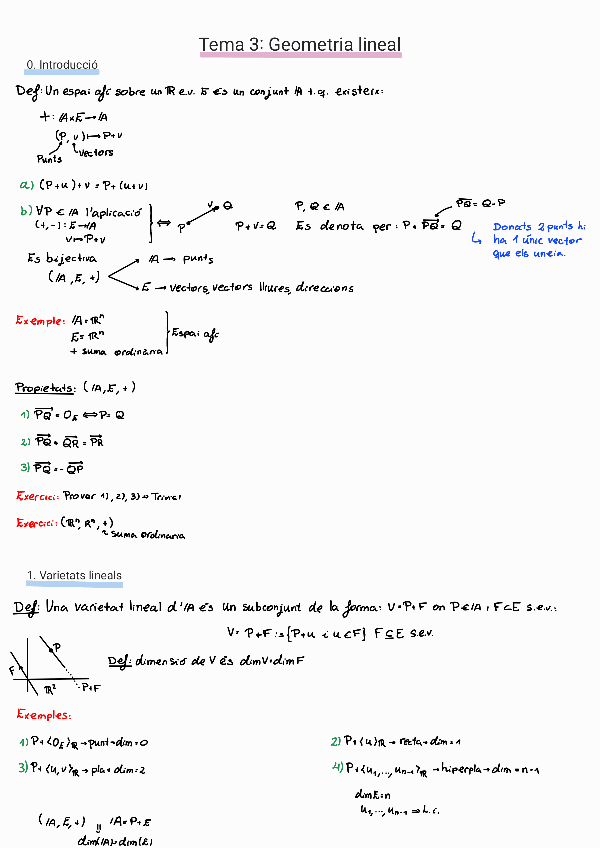 Tema 3: Geometria lineal
0. Introducció
Def: Un espai afc sobre un R e.v. E és un conjunt A t.q. existeix:
+: A×E → A
(P, v) ↦ P+v
Punts vectors
a) (P+u)+v = P+(u+v)
b) ∀P ∈ A l'aplicació
(+,-): E → A
v ↦ P+v
Es bijectiva
⇔ P v Q P+v=Q
P, Q ∈ A PQ = Q-P
Es denota per: P + PQ = Q
Donats 2 punts hi
ha 1 únic vector
que els uneix.
(A, E, +)
A → punts
E → vectors, vectors lliures, direccions
Exemple: A = Rⁿ
E = Rⁿ
+ suma ordinària
Espai afc
Propietats: (A, E, +)
1) PQ = O_E ⇔ P = Q
2) PQ + QR = PR
3) PQ = -QP
Exercici: Provar 1), 2), 3) → Trivial
Exercici: (Rⁿ, Rⁿ, +)
suma ordinaria
1. Varietats lineals
Def: Una varietat lineal d'A és un subconjunt de la forma: V=P+F on P∈A i F⊂E s.e.v.:
V = P+F := {P+u : u ∈ F} F ⊆ E s.e.v.
F P P+F R²
Def: dimensió de V és dimV=dimF
Exemples:
1) P+⟨O_E⟩_R → punt → dim=0
2) P+⟨u⟩_R → recta → dim=1
3) P+⟨u,v⟩_R → pla → dim=2
4) P+⟨u₁,...,uₙ₋₁⟩_R → hiperpla → dim=n-1
dimE=n
u₁,...,uₙ₋₁ → l.i.
(A, E, +) A=P+E
dim(A)=dim(E)